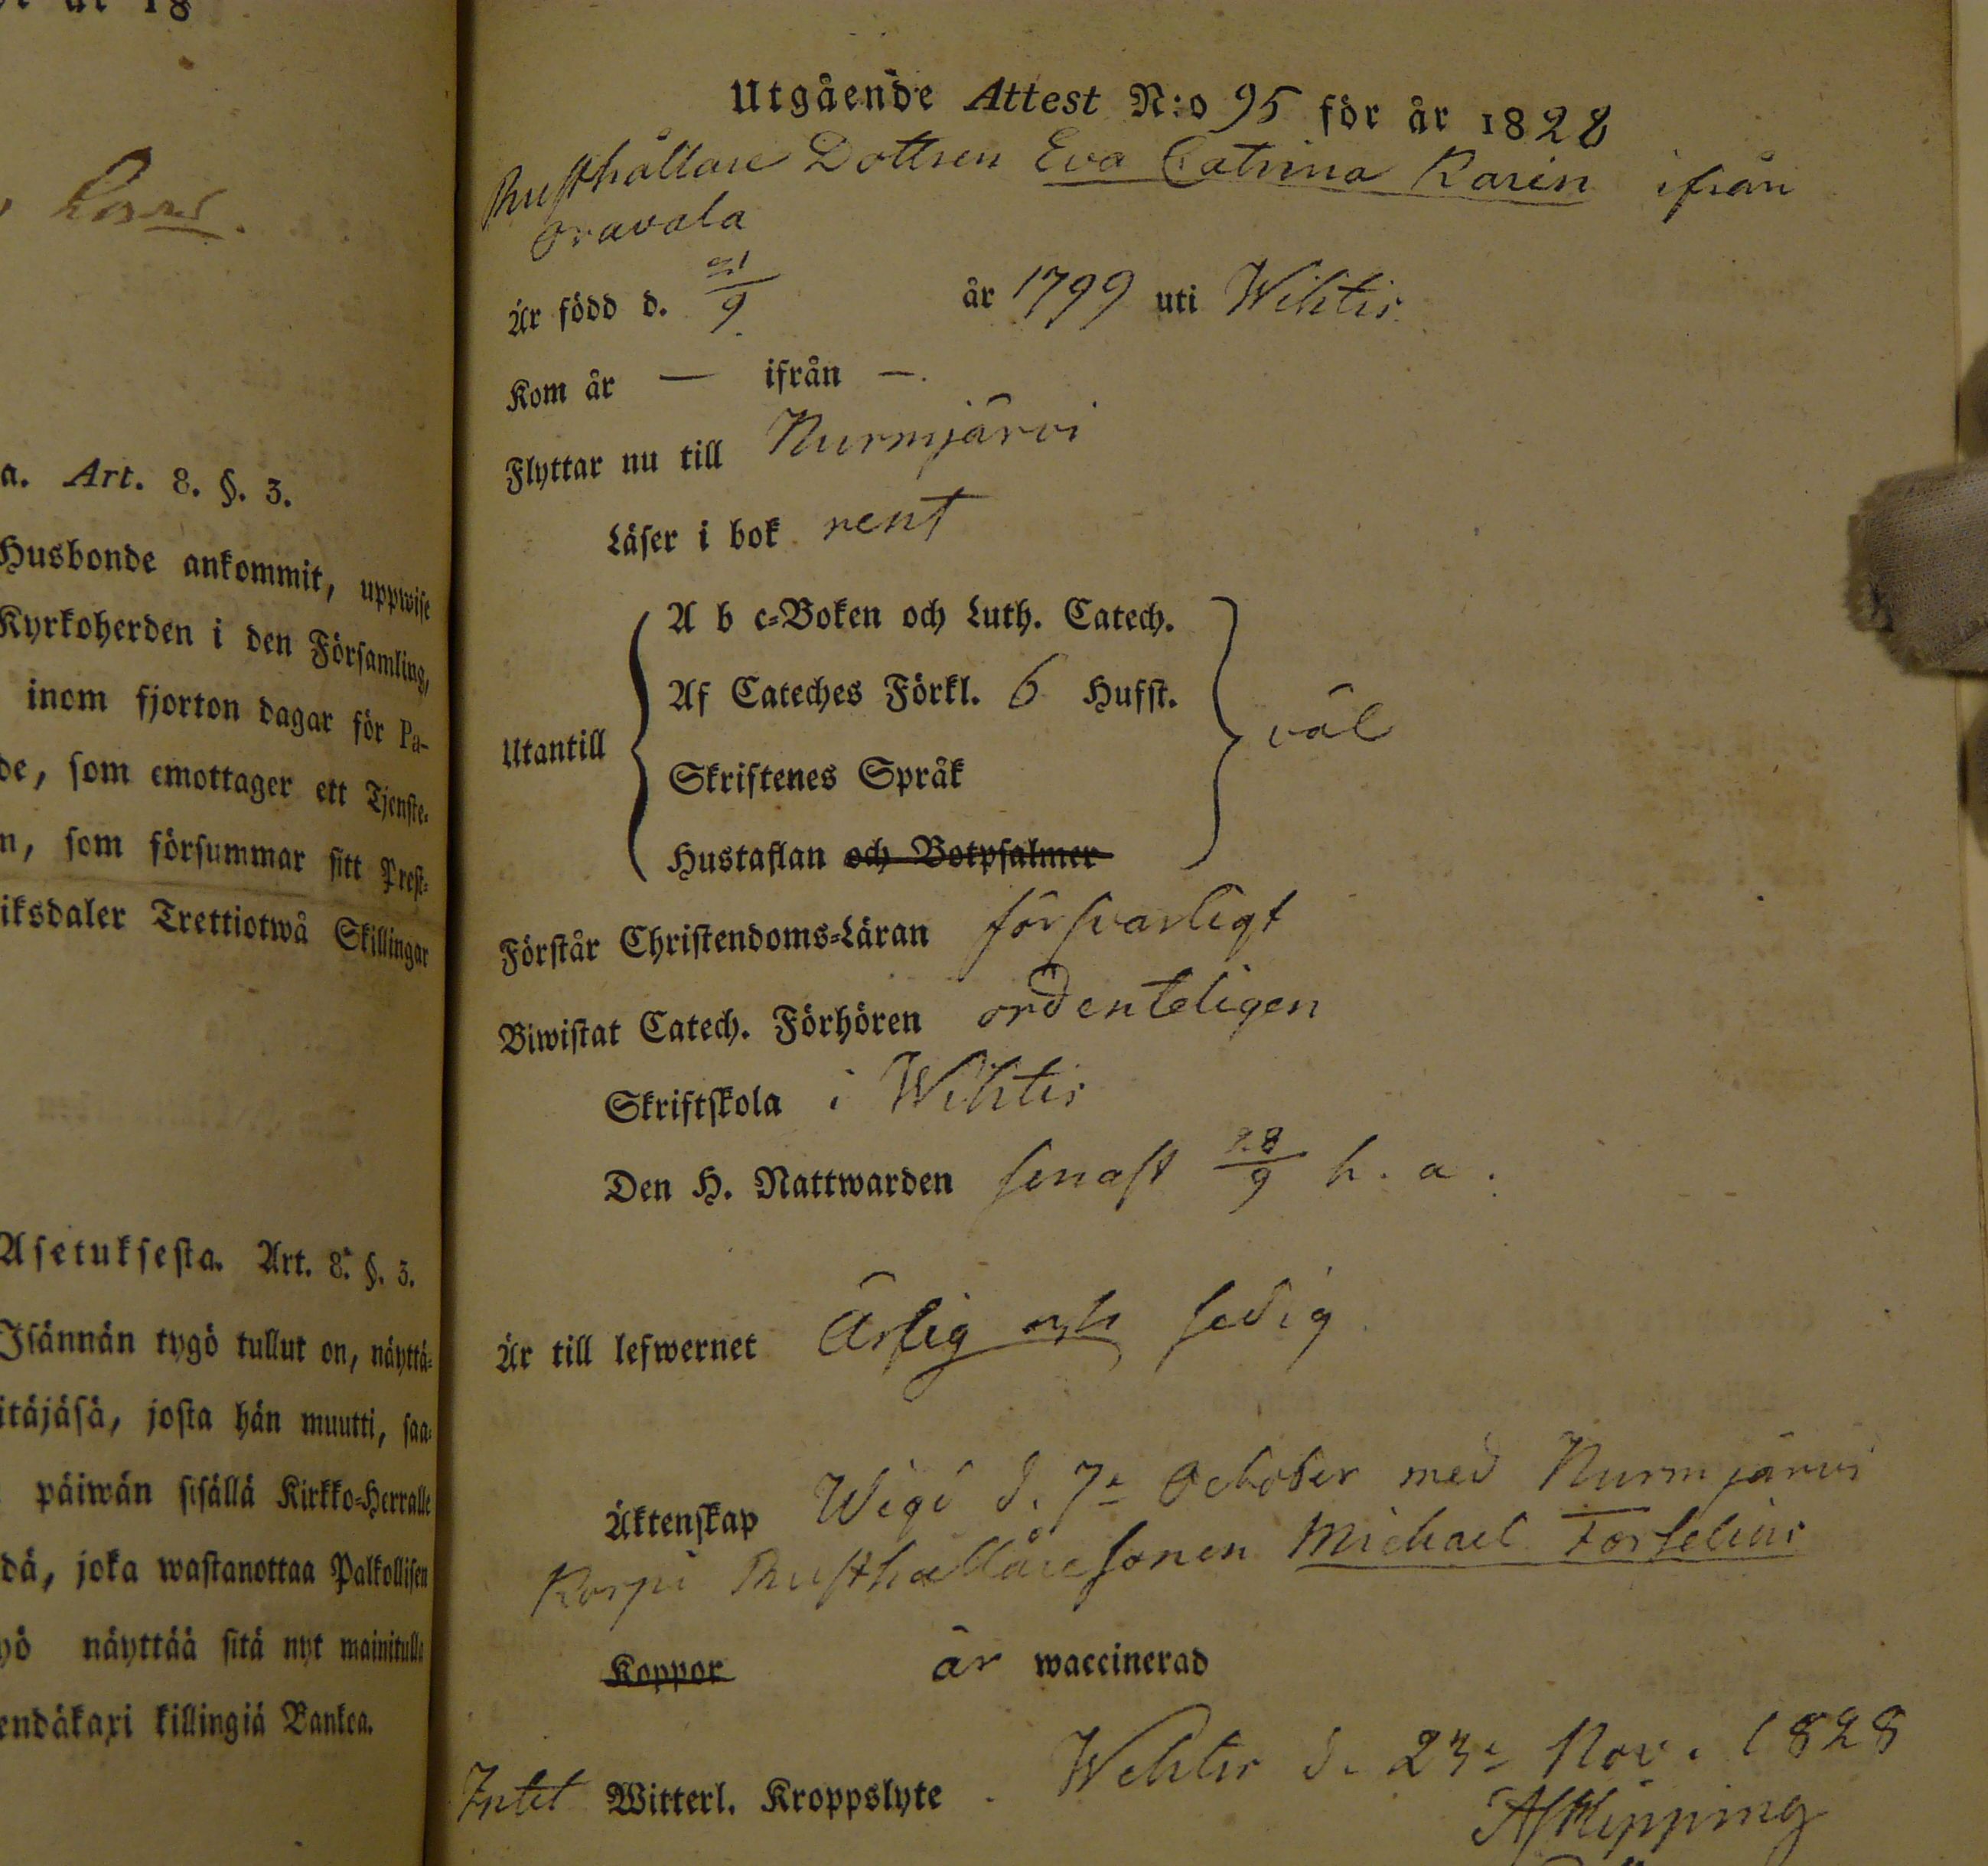 år 18
a. Art. 8. §. 3.
Husbonde ankommit, uppwise
Kyrkoherden i den Församling,
inom fjorton dagar för Pa-
de, som emottager ett Tjenste-
n, som försummar sitt Prest-
iksdaler Trettiotwå Skillingar
Asetuksesta. Art. 8. §. 3.
Isännän tygö tullut on, näyttä-
itäjäsä, josta hän muutti, saa-
päiwän sisällä Kirkko-Herralle
dä, joka wastanottaa Palkollisen
yö näyttää sitä nyt mainitulle
endäkaxi killingiä Bankoa.
Utgående Attest N:o 95 för år 1828
Rusthållare Dottren Eva Catrina Karin ifrån
Oravala
Är född d. /9 år 1799 uti Wihtis
Kom år — ifrån —.
Flyttar nu till Nurmjärvi
Läser i bok rent
Utantill
A b c-Boken och Luth. Catech.
Af Cateches Förkl. 6 Hufst.
Skriftenes Språk
Hustaflan och Botpsalmer
väl
Förstår Christendoms-Läran försvarligt
Biwistat Catech. Förhören ordenteligen
Skriftskola i Wihtis
Den H. Nattwarden senast 28/9 h. a.
Är till lefwernet Ärlig och sedig
Äktenskap Wigd d. 7e October med Nurmjärvi
Korpi Rusthållaresonen Michael Forselius
Koppor är waccinerad
Intet Witterl. Kroppslyte. Wihtis d. 23e Nov. 1828